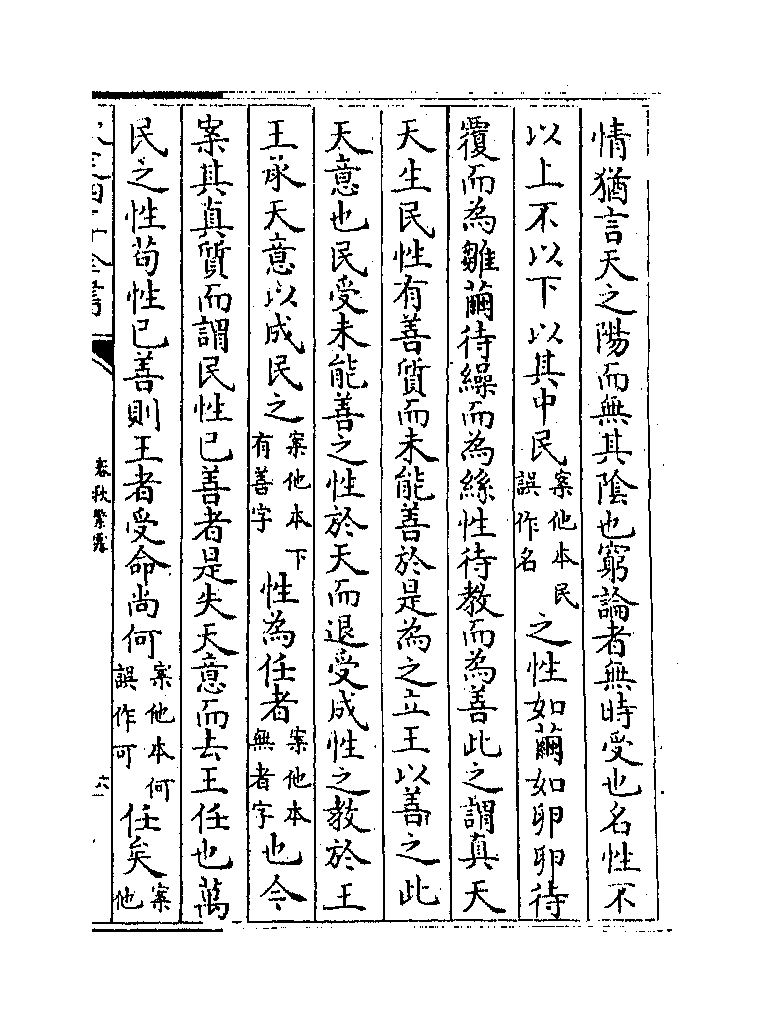 情猶言天之陽而無其陰也窮論者無時受也名性不
以上不以下以其中民案他本民誤作名之性如繭如卵卵待
覆而為雛繭待繰而為絲性待教而為善此之謂真天
天生民性有善質而未能善於是為之立王以善之此
天意也民受未能善之性於天而退受成性之教於王
王承天意以成民之案他本下有善字性為任者案他本無者字也今
案其真質而謂民性已善者是失天意而去王任也萬
民之性茍性已善則王者受命尚何案他本何誤作可任矣案他
春秋繁露
六